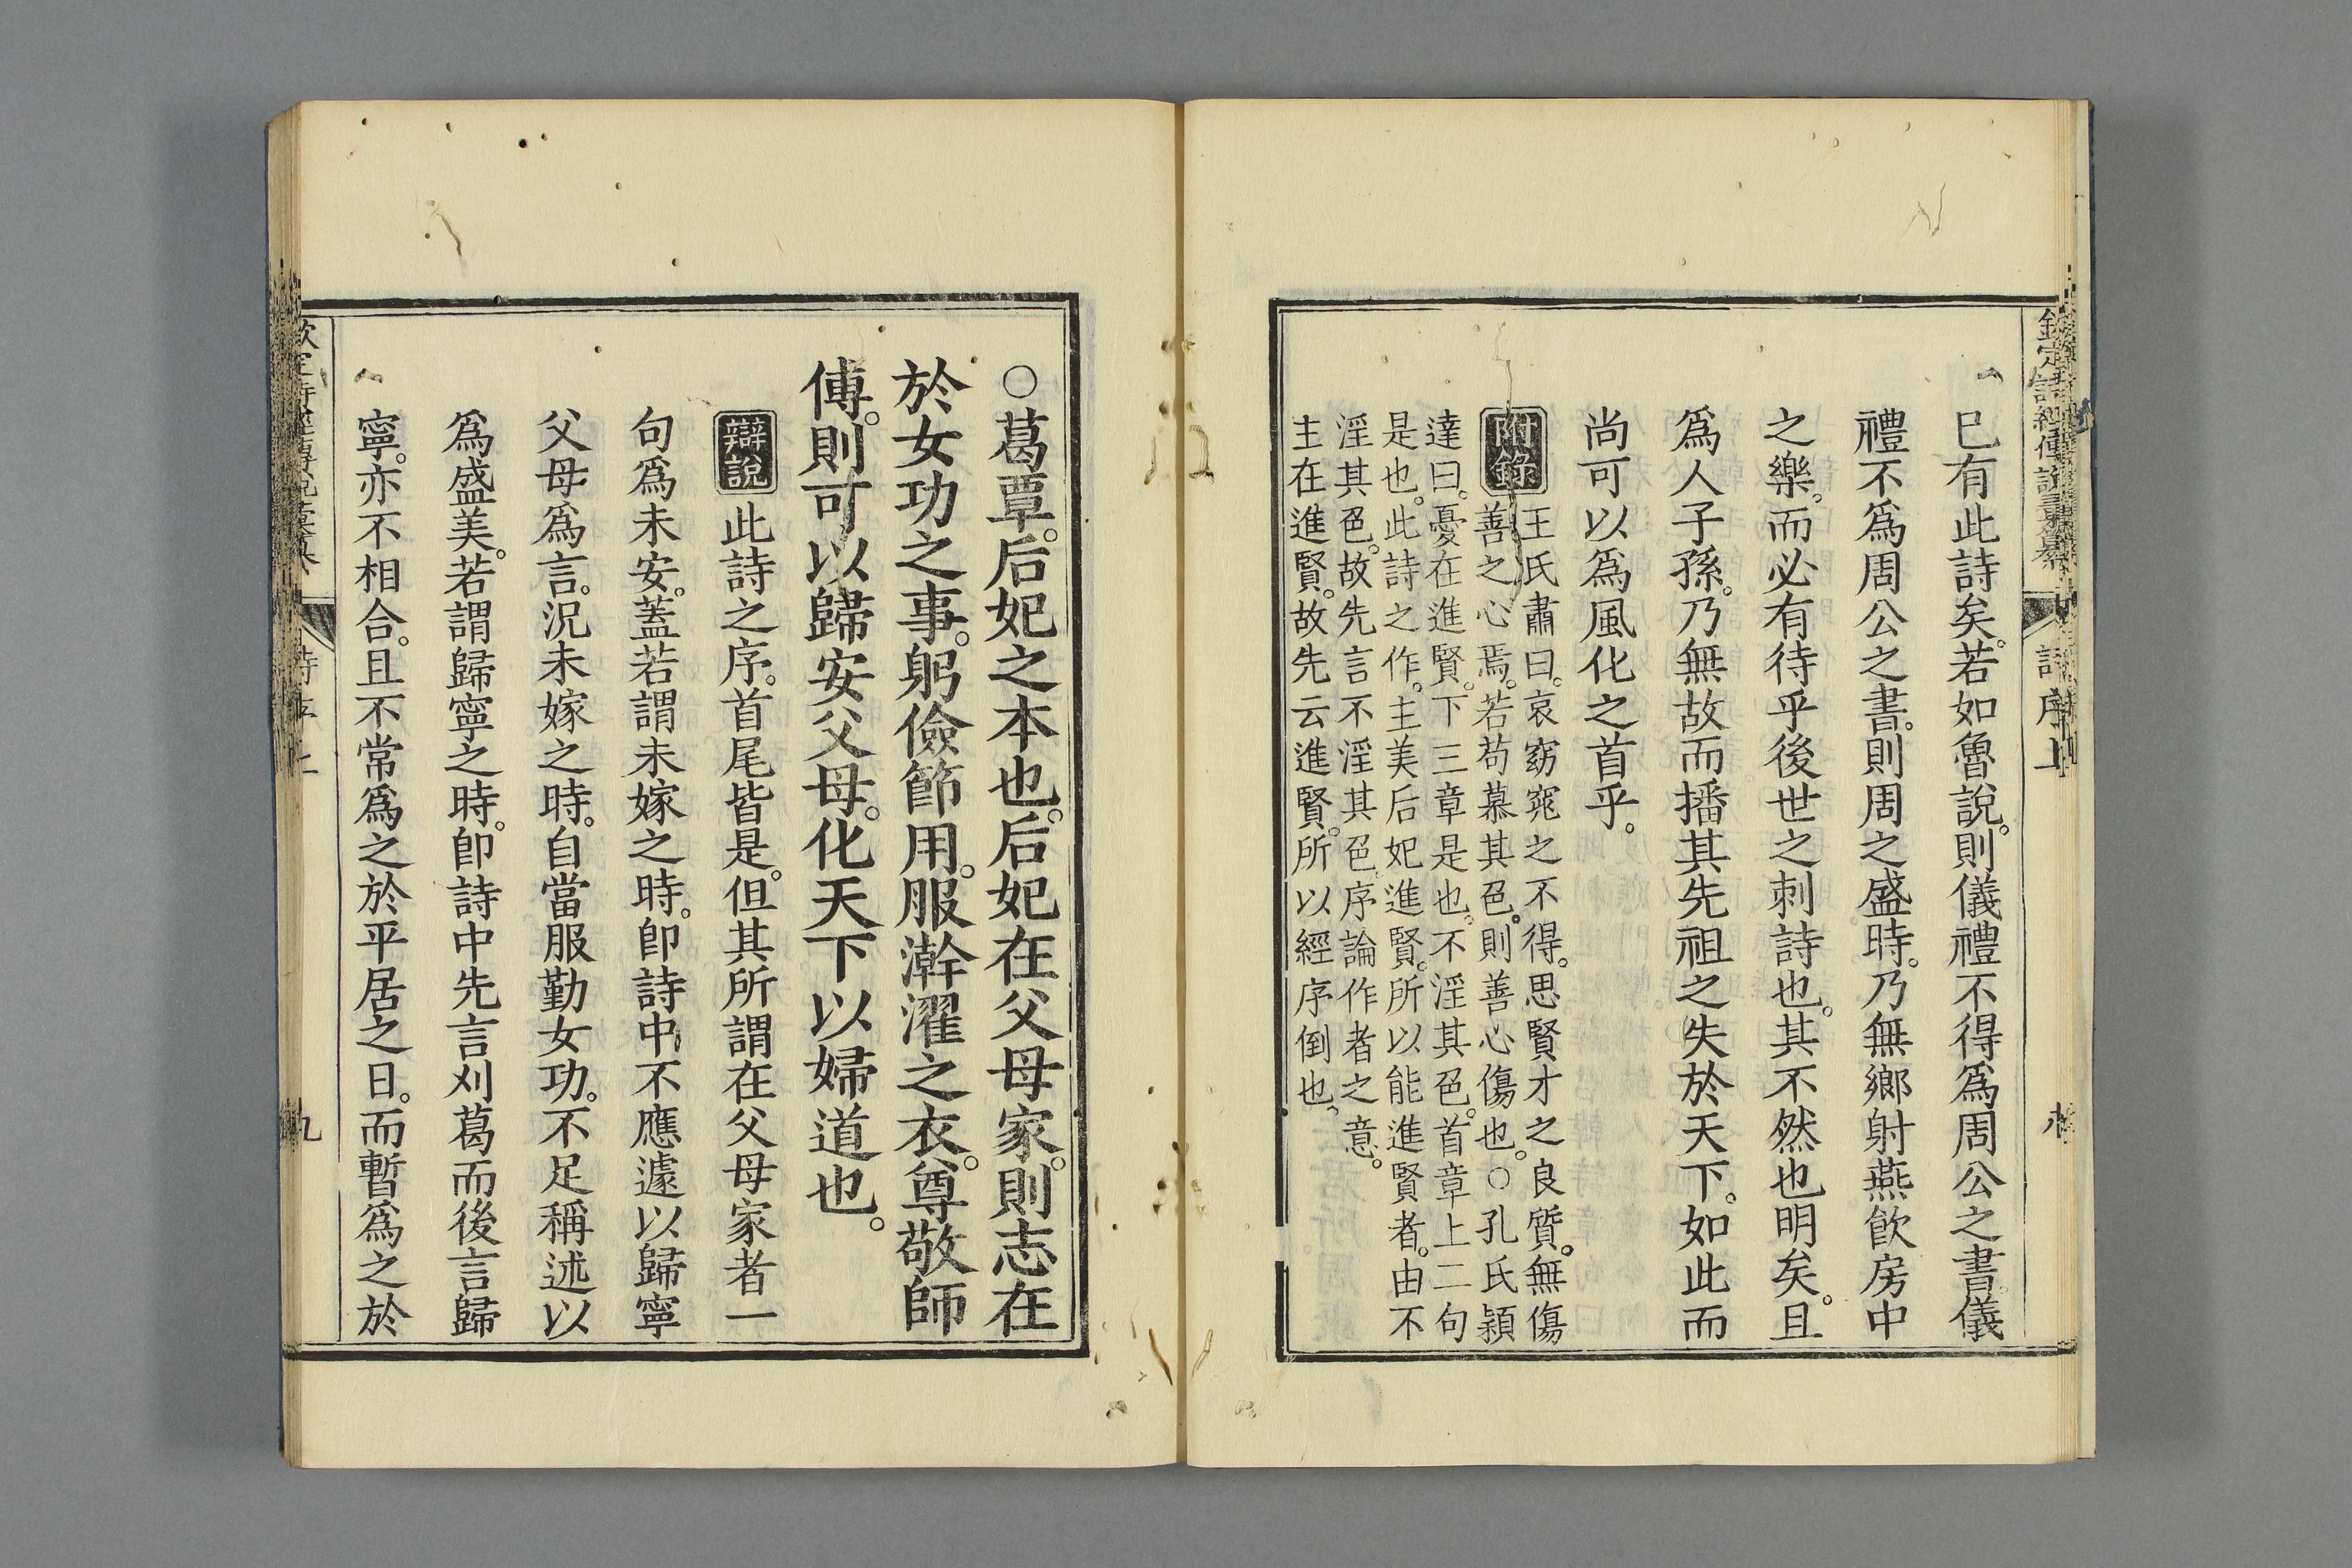 已有此詩矣。若如魯說。則儀禮不得爲周公之書。儀
禮不爲周公之書。則周之盛時。乃無鄉射燕飮房中
之樂。而必有待乎後世之刺詩也。其不然也明矣。且
爲人子孫。乃無故而播其先祖之失於天下。如此而
尚可以爲風化之首乎。
附錄
王氏肅曰。哀窈窕之不得。思賢才之良質。無傷
善之心焉。若苟慕其色。則善心傷也。○孔氏穎
達曰。憂在進賢。下三章是也。不淫其色。首章上二句
是也。此詩之作。主美后妃進賢。所以能進賢者。由不
淫其色。故先言不淫其色。序論作者之意。
主在進賢。故先云進賢。所以經序倒也。
○葛覃。后妃之本也。后妃在父母家。則志在
於女功之事。躬儉節用。服澣濯之衣。尊敬師
傅。則可以歸安父母。化天下以婦道也。
辯說
此詩之序。首尾皆是。但其所謂在父母家者一
句爲未安。蓋若謂未嫁之時。卽詩中不應遽以歸寧
父母爲言。況未嫁之時。自當服勤女功。不足稱述以
爲盛美。若謂歸寧之時。卽詩中先言刈葛而後言歸
寧。亦不相合。且不常爲之於平居之日。而暫爲之於